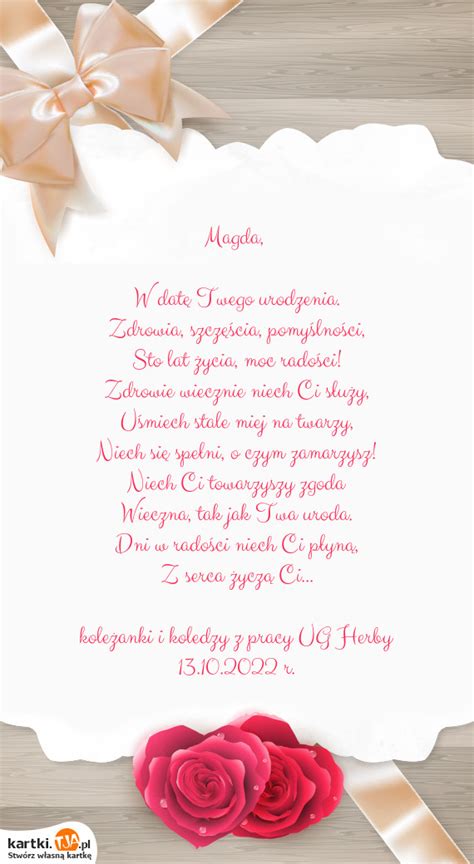 Magda,
W datę Twego urodzenia.
Zdrowia, szczęścia, pomyślności,
Sto lat życia, moc radości!
Zdrowie wiecznie niech Ci służy,
Uśmiech stale miej na twarzy,
Niech się spełni, o czym zamarzysz!
Niech Ci towarzyszy zgoda
Wieczna, tak jak Twa uroda.
Dni w radości niech Ci płyną,
Z serca życzą Ci...
koleżanki i koledzy z pracy UG Herby
13.10.2022 r.
kartki.TJA.pl
Stwórz własną kartkę